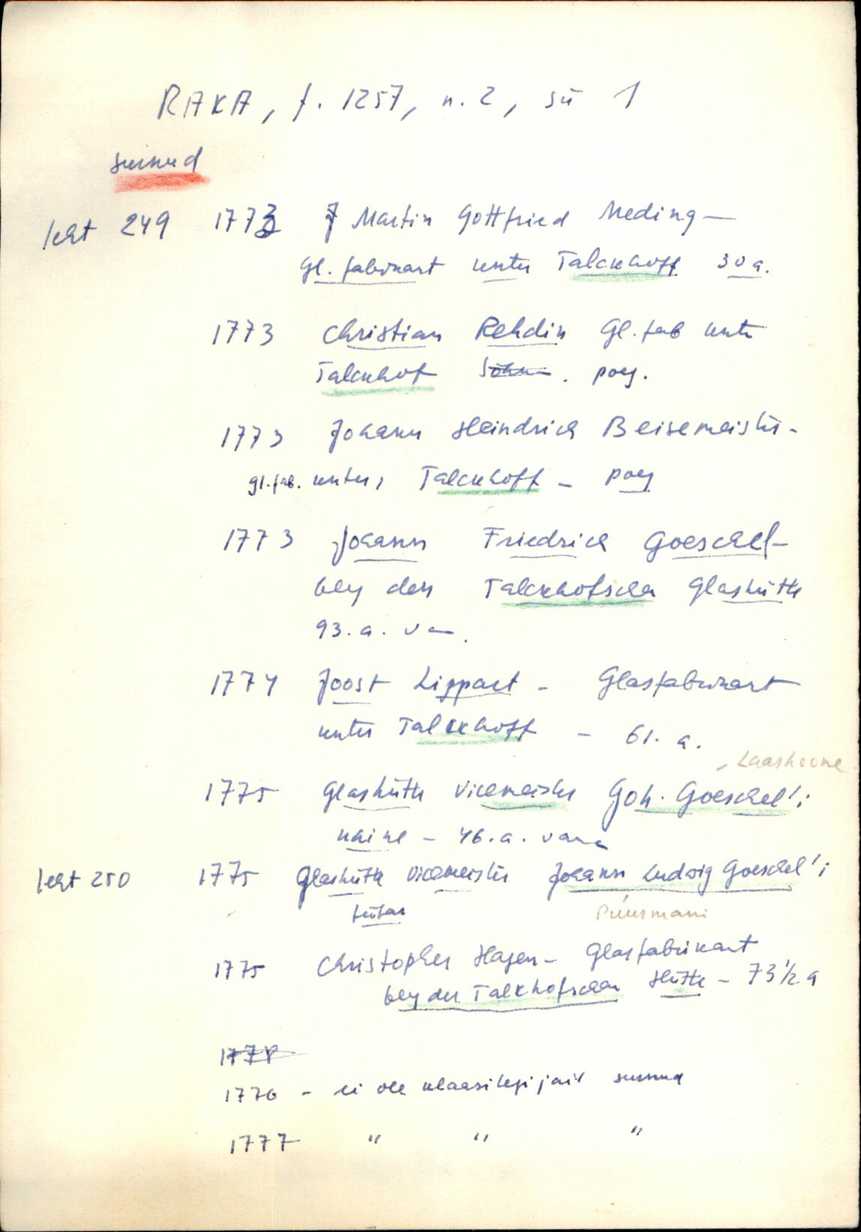 RAKA, f. 1257, n. 2, sü 1
surnud
leht 249 1773 Martin Gottfried Meding —
gl. fabrikant unter Talckhoff 30 a.
1773 Christian Rehdin Gl. fab unter
Talckhof Sohn. poeg.
1773 Johann Heindrich Beisemeister -
gl. fab. unter, Talckhoff - poeg
1773 Johann Friedrich Goeschel -
bey den Talckhofschen Glashütte
93. a. van.
1774 Joost Lippart - Glasfabrikant
unter Talckhoff - 61. a.
, Laashoone
1775 Glashütte vicemeister Joh. Goeschel';
naine - 46. a. vana
leht 250 1775 Glashütte vicemeister Johann Ludwig Goeschel';
tütar
1775 Christopher Hagen - Glasfabrikant
bey der Talkhofschen Hütte - 73 1/2 a
1774
1776 - ei ole klaasilegijaid surnud
1777 " " "